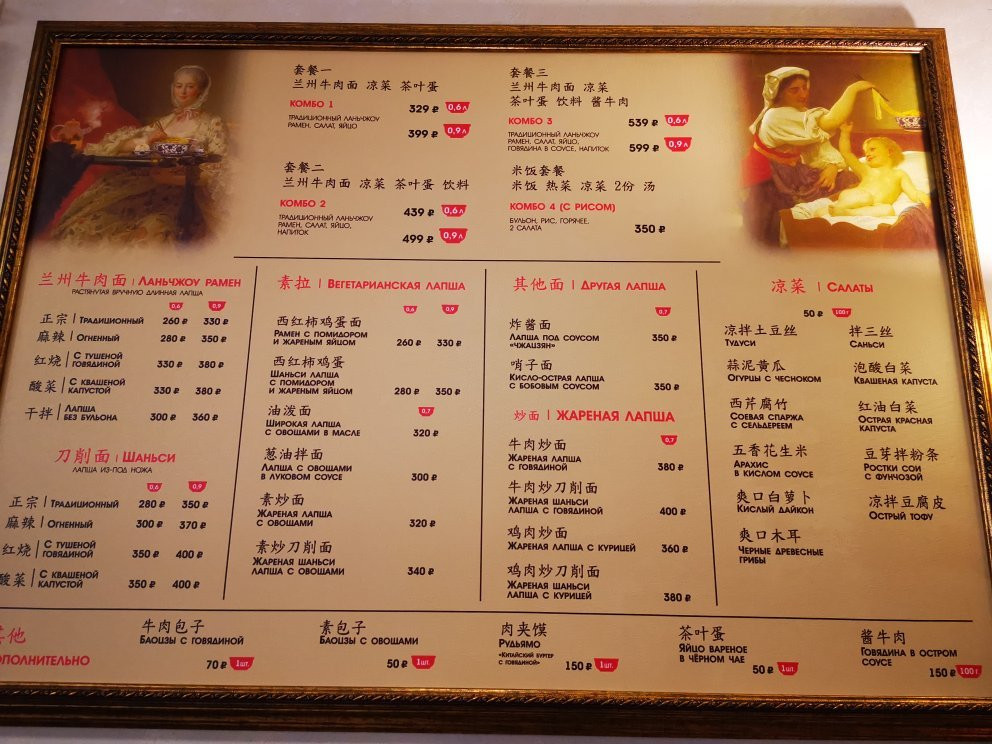 套餐一
兰州牛肉面 凉菜 茶叶蛋
КОМБО 1
329 ₽ 0,6 л
ТРАДИЦИОННЫЙ ЛАНЬЧЖОУ
РАМЕН, САЛАТ, ЯЙЦО
399 ₽ 0,9 л
套餐二
兰州牛肉面 凉菜 茶叶蛋 饮料
КОМБО 2
439 ₽ 0,6 л
ТРАДИЦИОННЫЙ ЛАНЬЧЖОУ
РАМЕН, САЛАТ, ЯЙЦО,
НАПИТОК
499 ₽ 0,9 л
套餐三
兰州牛肉面 凉菜
茶叶蛋 饮料 酱牛肉
КОМБО 3
539 ₽ 0,6 л
ТРАДИЦИОННЫЙ ЛАНЬЧЖОУ
РАМЕН, САЛАТ, ЯЙЦО,
ГОВЯДИНА В СОУСЕ, НАПИТОК
599 ₽ 0,9 л
米饭套餐
米饭 热菜 凉菜 2份 汤
КОМБО 4 (С РИСОМ)
БУЛЬОН, РИС, ГОРЯЧЕЕ,
2 САЛАТА
350 ₽
兰州牛肉面 | ЛАНЬЧЖОУ РАМЕН
РАСТЯНУТАЯ ВРУЧНУЮ ДЛИННАЯ ЛАПША
0,6 0,9
正宗 | ТРАДИЦИОННЫЙ 260 ₽ 330 ₽
麻辣 | ОГНЕННЫЙ 280 ₽ 350 ₽
红烧 | С ТУШЕНОЙ
ГОВЯДИНОЙ 330 ₽ 380 ₽
酸菜 | С КВАШЕНОЙ
КАПУСТОЙ 330 ₽ 380 ₽
干拌 | ЛАПША
БЕЗ БУЛЬОНА 300 ₽ 360 ₽
刀削面 | ШАНЬСИ
ЛАПША ИЗ-ПОД НОЖА
0,6 0,9
正宗 | ТРАДИЦИОННЫЙ 280 ₽ 350 ₽
麻辣 | ОГНЕННЫЙ 300 ₽ 370 ₽
红烧 | С ТУШЕНОЙ
ГОВЯДИНОЙ 350 ₽ 400 ₽
酸菜 | С КВАШЕНОЙ
КАПУСТОЙ 350 ₽ 400 ₽
素拉 | ВЕГЕТАРИАНСКАЯ ЛАПША
0,6 0,9
西红柿鸡蛋面
РАМЕН С ПОМИДОРОМ
И ЖАРЕНЫМ ЯЙЦОМ 260 ₽ 330 ₽
西红柿鸡蛋
ШАНЬСИ ЛАПША
С ПОМИДОРОМ
И ЖАРЕНЫМ ЯЙЦОМ 280 ₽ 350 ₽
油泼面
0,7
ШИРОКАЯ ЛАПША
С ОВОЩАМИ В МАСЛЕ 320 ₽
葱油拌面
ЛАПША С ОВОЩАМИ
В ЛУКОВОМ СОУСЕ 300 ₽
素炒面
ЖАРЕНАЯ ЛАПША
С ОВОЩАМИ 320 ₽
素炒刀削面
ЖАРЕНАЯ ШАНЬСИ
ЛАПША С ОВОЩАМИ 340 ₽
其他面 | ДРУГАЯ ЛАПША
0,7
炸酱面
ЛАПША ПОД СОУСОМ
«ЧЖАЦЗЯН» 350 ₽
哨子面
КИСЛО-ОСТРАЯ ЛАПША
С БОБОВЫМ СОУСОМ 350 ₽
炒面 | ЖАРЕНАЯ ЛАПША
0,7
牛肉炒面
ЖАРЕНАЯ ЛАПША
С ГОВЯДИНОЙ 380 ₽
牛肉炒刀削面
ЖАРЕНАЯ ШАНЬСИ
ЛАПША С ГОВЯДИНОЙ 400 ₽
鸡肉炒面
ЖАРЕНАЯ ЛАПША С КУРИЦЕЙ 360 ₽
鸡肉炒刀削面
ЖАРЕНАЯ ШАНЬСИ
ЛАПША С КУРИЦЕЙ 380 ₽
凉菜 | САЛАТЫ
50 ₽ 100 г
凉拌土豆丝
ТУДУСИ
蒜泥黄瓜
ОГУРЦЫ С ЧЕСНОКОМ
西芹腐竹
СОЕВАЯ СПАРЖА
С СЕЛЬДЕРЕЕМ
五香花生米
АРАХИС
В КИСЛОМ СОУСЕ
爽口白萝卜
КИСЛЫЙ ДАЙКОН
爽口木耳
ЧЕРНЫЕ ДРЕВЕСНЫЕ
ГРИБЫ
拌三丝
САНЬСИ
泡酸白菜
КВАШЕНАЯ КАПУСТА
红油白菜
ОСТРАЯ КРАСНАЯ
КАПУСТА
豆芽拌粉条
РОСТКИ СОИ
С ФУНЧОЗОЙ
凉拌豆腐皮
ОСТРЫЙ ТОФУ
其他
ОПОЛНИТЕЛЬНО
牛肉包子
БАОЦЗЫ С ГОВЯДИНОЙ
70 ₽ 1шт.
素包子
БАОЦЗЫ С ОВОЩАМИ
50 ₽ 1шт.
肉夹馍
РУДЬЯМО
«КИТАЙСКИЙ БУРГЕР
С ГОВЯДИНОЙ»
150 ₽ 1шт.
茶叶蛋
ЯЙЦО ВАРЕНОЕ
В ЧЁРНОМ ЧАЕ
50 ₽ 1шт.
酱牛肉
ГОВЯДИНА В ОСТРОМ
СОУСЕ
150 ₽ 100 г